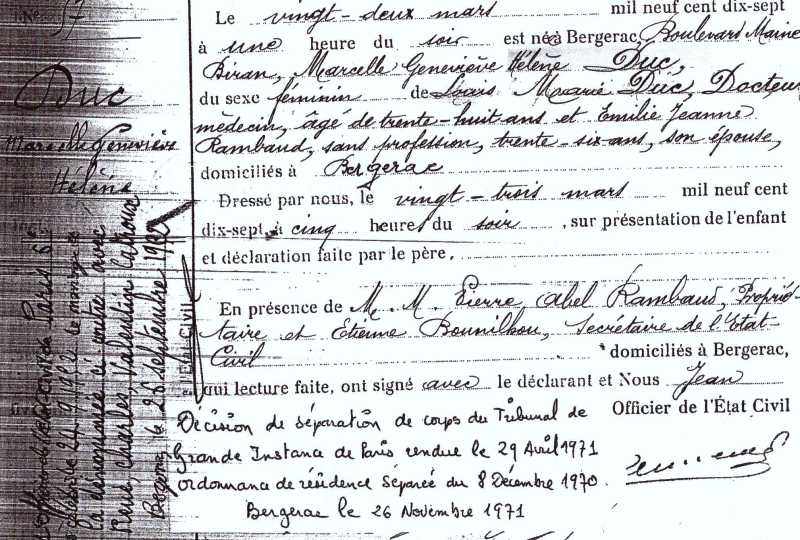 N° 57
Duc
Marcelle Geneviève
Hélène
Le vingt-deux mars mil neuf cent dix-sept
à une heure du soir est née à Bergerac, Boulevard Maine
Biran, Marcelle Geneviève Hélène Duc,
du sexe féminin de Louis Marie Duc, Docteur
médecin, âgé de trente-huit ans et Emilie Jeanne
Rambaud, sans profession, trente-six ans, son épouse,
domiciliés à Bergerac
Dressé par nous, le vingt-trois mars mil neuf cent
dix-sept, à cinq heures du soir, sur présentation de l'enfant
et déclaration faite par le père,
En présence de M. M. Pierre Abel Rambaud, Proprié-
taire et Etienne Bounilhou, Secrétaire de l'Etat-
Civil domiciliés à Bergerac,
qui lecture faite, ont signé avec le déclarant et Nous Jean
Officier de l'État Civil
Décision de séparation de corps du Tribunal de
Grande Instance de Paris rendue le 29 Avril 1971
ordonnance de résidence séparée du 8 Décembre 1970.
Bergerac le 26 Novembre 1971
Paris 8e
célébré le 24 9 1932 le mariage de
la dénommée ci contre avec
René, Charles, Valentin
Bergerac, le 26 septembre 1932